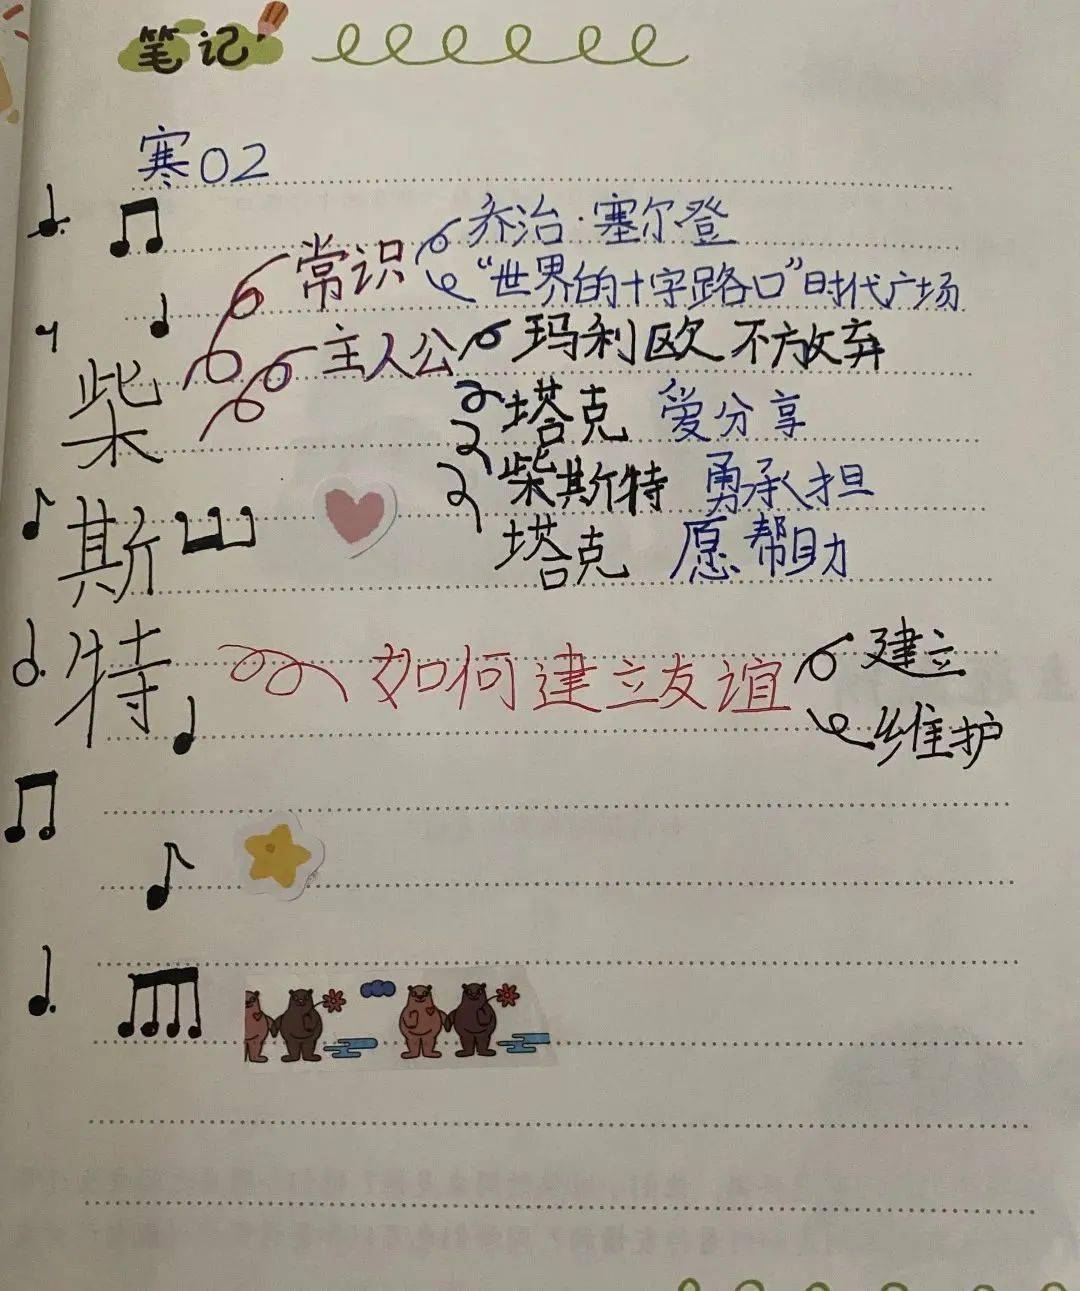 笔记
寒02
常识
乔治·塞尔登
“世界的十字路口”时代广场
主人公
玛利欧 不放弃
塔克 爱分享
柴斯特 勇承担
塔克 愿帮助
柴
斯
特
如何建立友谊
建立
维护